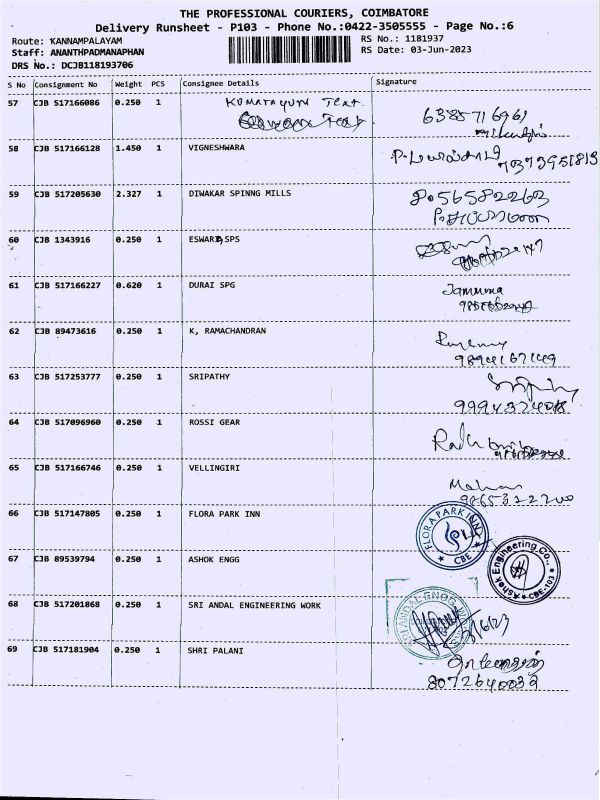 THE PROFESSIONAL COURIERS, COIMBATORE
Delivery Runsheet - P103 - Phone No.:0422-3505555 - Page No.:6
Route: KANNAMPALAYAM RS No.: 1181937
Staff: ANANTHPADMANAPHAN RS Date: 03-Jun-2023
DRS No.: DCJB118193706
S No Consignment No Weight PCS Consignee Details Signature
57 CJB 517166086 0.250 1
58 CJB 517166128 1.450 1 VIGNESHWARA
59 CJB 517205630 2.327 1 DIWAKAR SPINNG MILLS
60 CJB 1343916 0.250 1 ESWARI SPS
61 CJB 517166227 0.620 1 DURAI SPG Jamuna
62 CJB 89473616 0.250 1 K, RAMACHANDRAN
9894167149
63 CJB 517253777 0.250 1 SRIPATHY
64 CJB 517096960 0.250 1 ROSSI GEAR
65 CJB 517166746 0.250 1 VELLINGIRI
66 CJB 517147805 0.250 1 FLORA PARK INN FLORA PARK INN CBE
67 CJB 89539794 0.250 1 ASHOK ENGG Ashok Engineering Co., CBE-103
68 CJB 517201868 0.250 1 SRI ANDAL ENGINEERING WORK
69 CJB 517181904 0.250 1 SHRI PALANI
8072640039